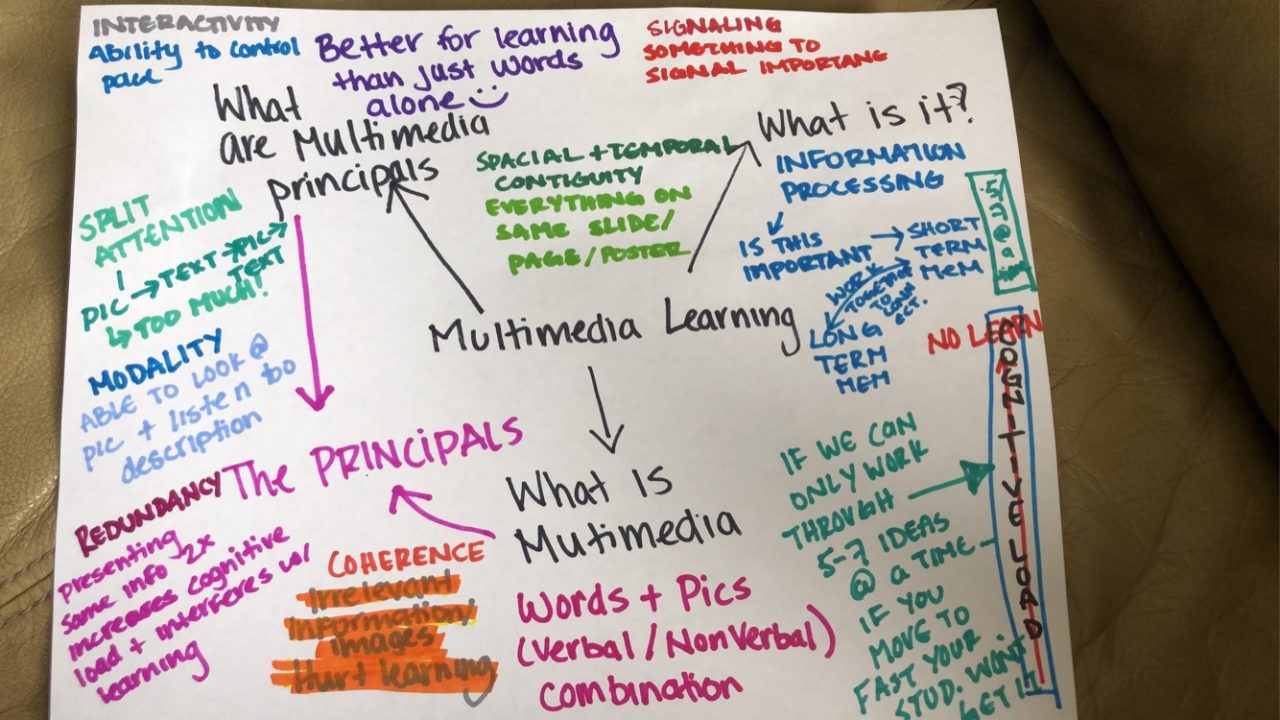 INTERACTIVITY
Ability to control
pace
Better for learning
than just words
alone
SIGNALING
SOMETHING TO
SIGNAL IMPORTANG
What
are Multimedia
principals
What is it?
INFORMATION
PROCESSING
IS THIS
IMPORTANT
SHORT
TERM
MEM
WORK
TOGETHER
TO
LONG
TERM
MEM
SPACIAL + TEMPORAL
CONTIGUITY
EVERYTHING ON
SAME SLIDE/
PAGE/POSTER
SPLIT
ATTENTION
PIC → TEXT → PIC →
TEXT
TOO MUCH!
Multimedia Learning
MODALITY
ABLE TO LOOK @
pic + listen too
description
The PRINCIPALS
REDUNDANCY
presenting
same info 2x
increases cognitive
load + interferes w/
learning
COHERENCE
Irrelevant
information/
images
Hurt learning
What Is
Mutimedia
Words + Pics
(Verbal / NonVerbal)
combination
NO LEARN
COGNITIVE LOAD
IF WE CAN
ONLY WORK
THROUGH
5-7 IDEAS
@ a TIME -
IF YOU
MOVE TO
FAST YOUR
STUD. WON'T
GET IT